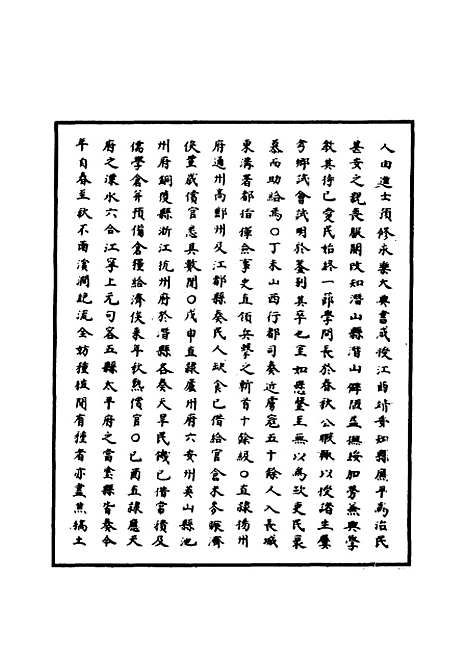 人由進士預修永樂大典書成授江西靖安知縣廉平為治民
甚安之親喪服闋改知潛山縣潛山僻陋益撫綏加勞兼興學
教其待已愛民始終一節學問長於春秋公暇輒以授諸生屢
考鄉試會試明於鑒別其卒也至如懸罄至無以為歛吏民哀
慕而助給焉○丁未山西行都司奏近虜寇五十餘人入長城
東溝著都指揮僉事史直領兵擊之斬首十餘級○直隸揚州
府通州高郵州及江都縣奏民人缺食已借給官倉米麥賑濟
俟薑成償官悉具數聞○戊申直隸廬州府六安州英山縣池
州府銅陵縣浙江杭州府於潛縣各奏天旱民饑已借當積及
儒學倉并預備倉糧給濟俟來年秋熟償官○己酉直隸應天
府之溧水六合江寧上元句容五縣太平府之當塗縣皆奏今
年自春至秋不雨濱澗絕流全妨種植間有種者亦盡焦槁土